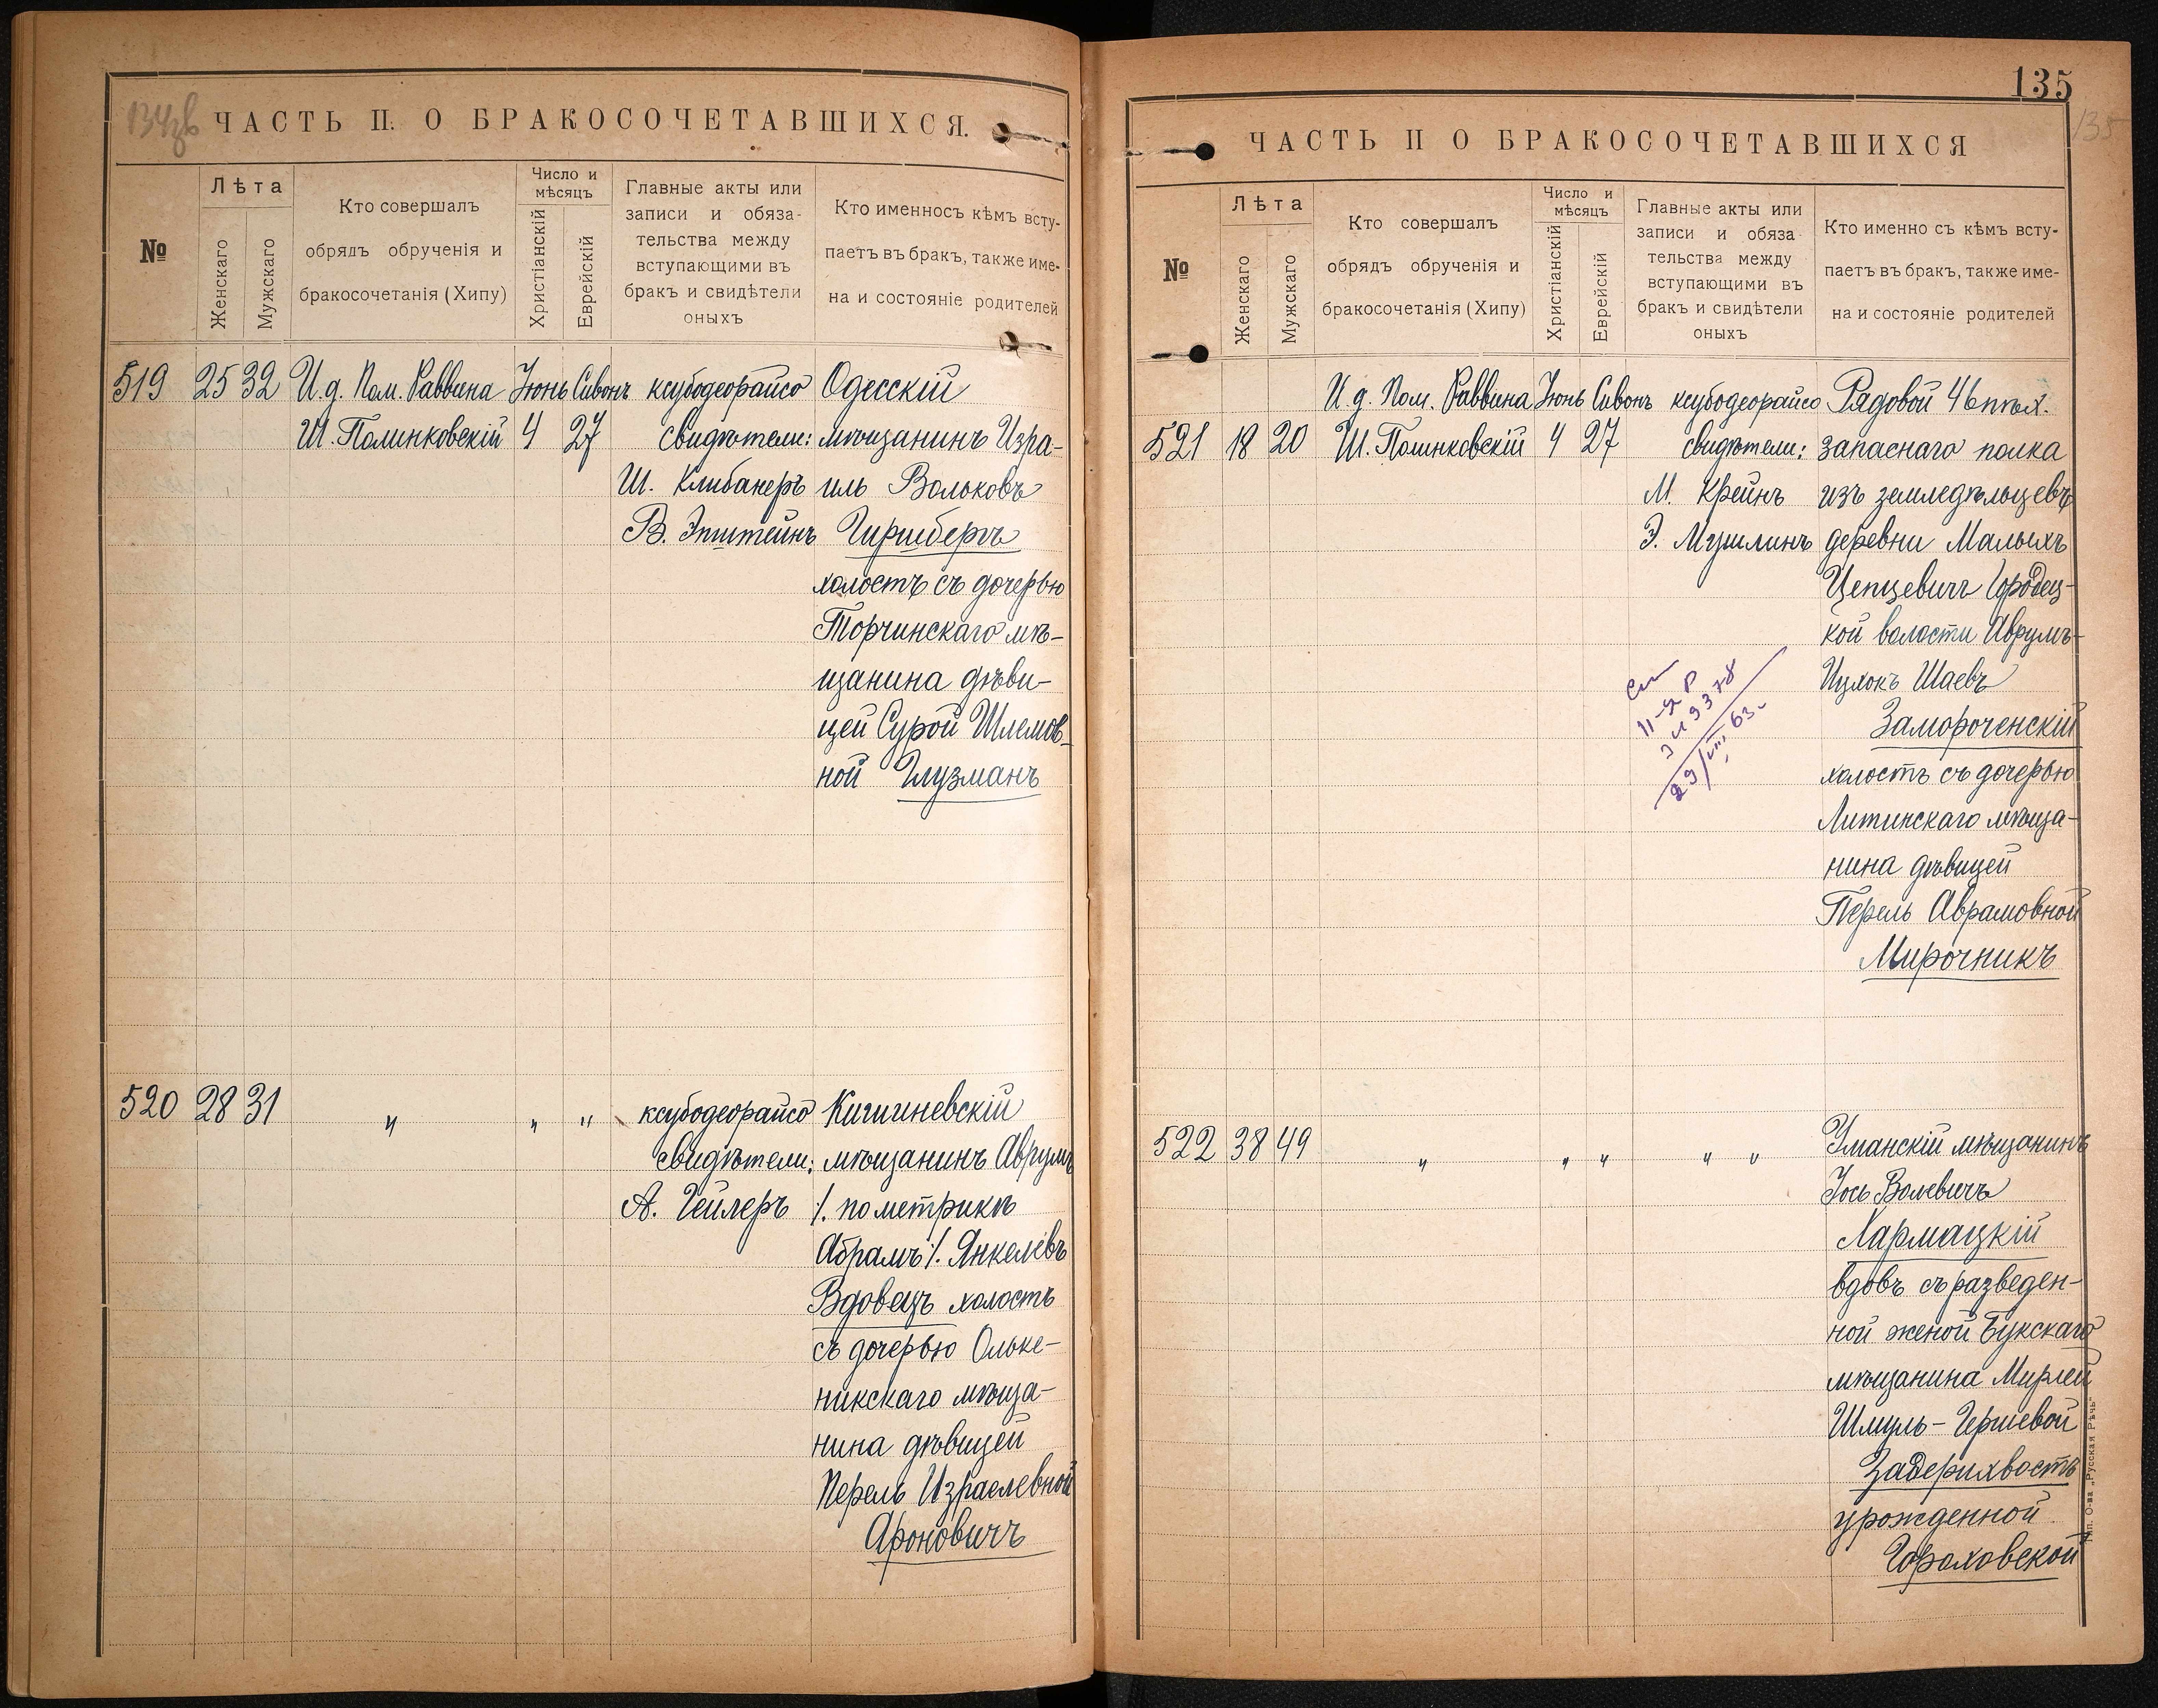 134зв
ЧАСТЬ II. О БРАКОСОЧЕТАВШИХСЯ.
№
Лѣта
Женскаго
Мужскаго
Кто совершалъ
обрядъ обрученія и
бракосочетанія (Хипу)
Число и
мѣсяцъ
Христіанскій
Еврейскій
Главные акты или
записи и обяза-
тельства между
вступающими въ
бракъ и свидѣтели
оныхъ
Кто именносъ кѣмъ всту-
паетъ въ бракъ, также име-
на и состояніе родителей
519 25 32 И.д. Пом. Раввина Іюнь Сивонъ ксубодеорайсо Одесскій
Ш. Полинковскій 4 27 свидѣтели: мѣщанинъ Изра-
Ш. Клибанеръ иль Вольковъ
В. Эпштейнъ Гиршбергъ
холостъ съ дочерью
Торчинскаго мѣ-
щанина дѣви-
цей Сурой Шлемов-
ной Глузманъ
520 28 31 " " " ксубодеорайсо Кишиневскій
свидѣтели: мѣщанинъ Аврумъ
А. Гейлеръ /. по метрикѣ
Абрамъ /. Янкелевъ
Вдовецъ холостъ
съ дочерью Ольке-
никскаго мѣща-
нина дѣвицей
Перель Израелевной
Ароновичъ
135
135
ЧАСТЬ II О БРАКОСОЧЕТАВШИХСЯ
№
Лѣта
Женскаго
Мужскаго
Кто совершалъ
обрядъ обрученія и
бракосочетанія (Хипу)
Число и
мѣсяцъ
Христіанскій
Еврейскій
Главные акты или
записи и обяза
тельства между
вступающими въ
бракъ и свидѣтели
оныхъ
Кто именно съ кѣмъ всту-
паетъ въ бракъ, также име-
на и состояніе родителей
И.д. Пом. Раввина Іюнь Сивонъ ксубодеорайсо Рядовой 46 пѣх.
521 18 20 Ш. Полинковскій 4 27 свидѣтели: запаснаго полка
М. Крейнъ изъ земледѣльцевъ
Э. Мушлинъ деревни Малыхъ
Цепцевичъ Городец-
кой волости Аврумъ-
Ицхокъ Шаевъ
Замороченскій
холостъ съ дочерью
Литинскаго мѣща-
нина дѣвицей
Перель Аврамовной
Мирочникъ
29/VIII 63.
522 38 49 " " " " " Уманскій мѣщанинъ
Іось Волевичъ
Хармацкій
вдовъ съ разведен-
ной женой Букскаго
мѣщанина Мирлей
Шмуль-Гершевой
Задерихвостъ
урожденной
Гороховской
Тип. О-ва „Русская Рѣчь"